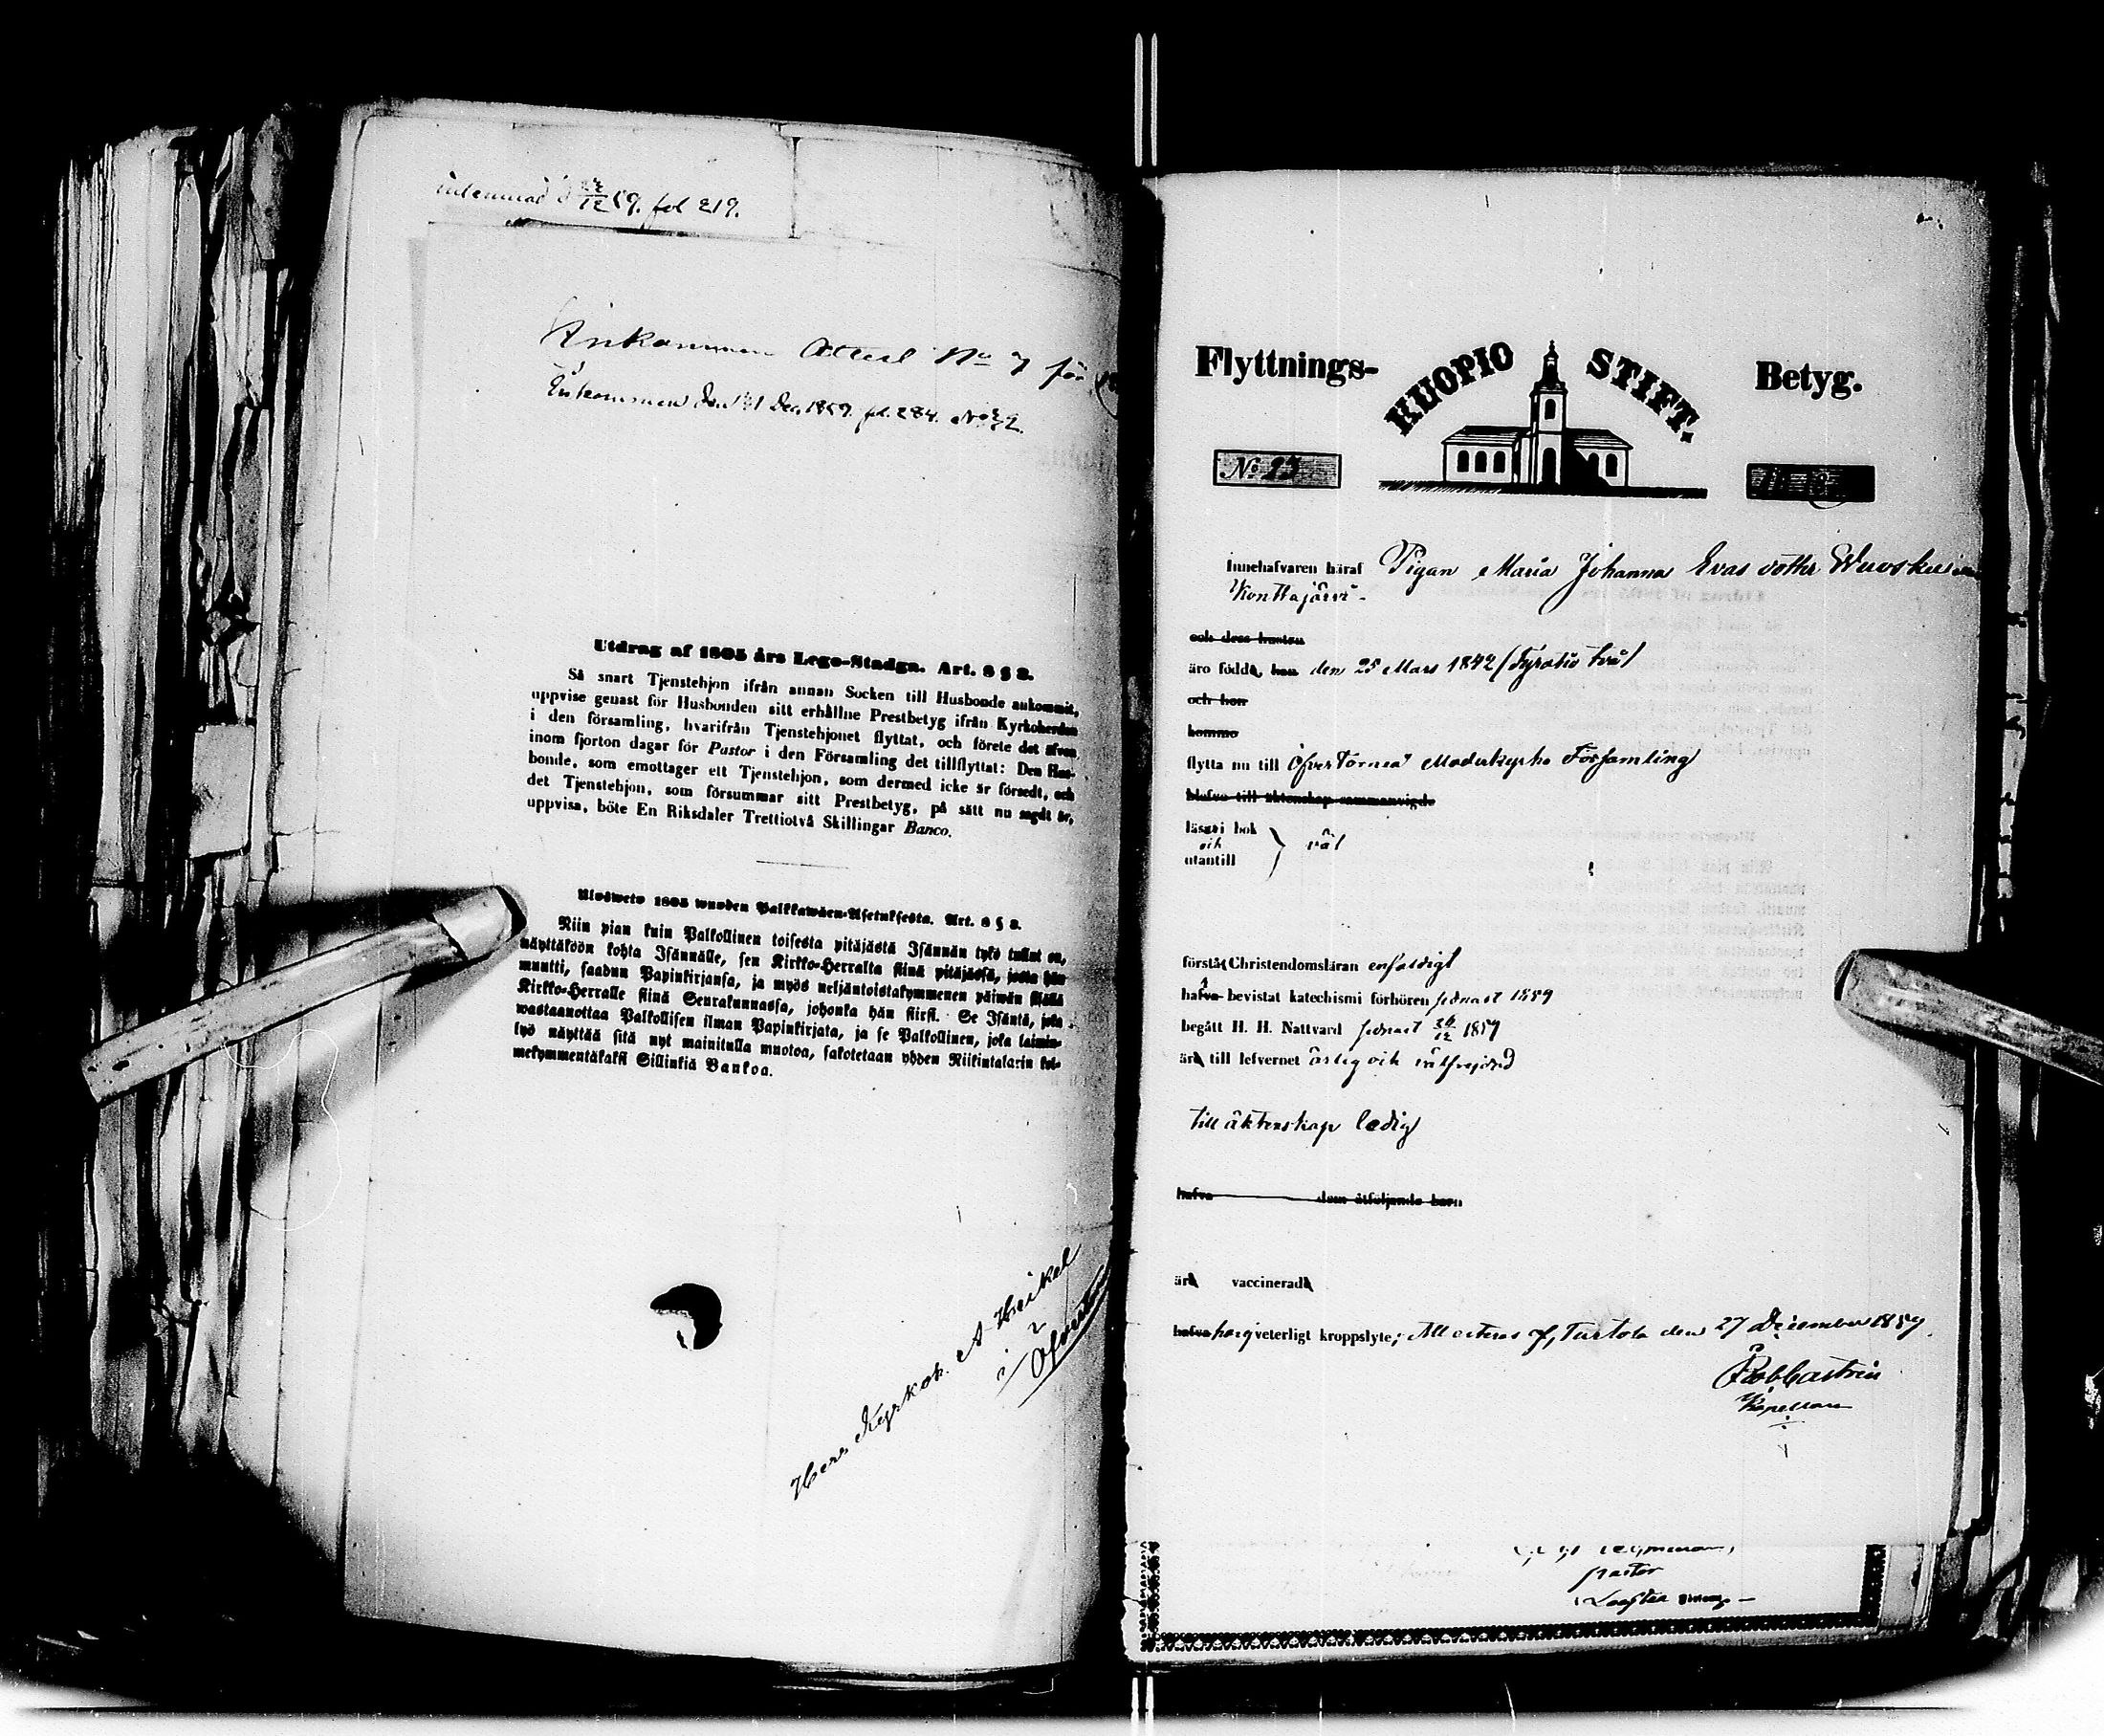 inlemnad d 12 59. fol 219.
Inkommen Attest No 7 för
Inkommen den 31 Dec 1859. fol. 284. No 32.
Utdrag af 1805 års Lego-Stadga. Art. 8 § 2.
Så snart Tjenstehjon ifrån annan Socken till Husbonde ankommit,
uppvise genast för Husbonden sitt erhållne Prestbetyg ifrån Kyrkoherden
i den församling, hvarifrån Tjenstehjonet flyttat, och förete det äfven
inom fjorton dagar för Pastor i den Församling det tillflyttat: Den Hus-
bonde, som emottager ett Tjenstehjon, som dermed icke är försedt, och
det Tjenstehjon, som försummar sitt Prestbetyg, på sätt nu sagdt är,
uppvisa, böte En Riksdaler Trettiotvå Skillingar Banco.
Ulosweto 1805 wuoden Palkkawäen-Asetuksesta. Art. 8 § 2.
Niin pian kuin Palkollinen toisesta pitäjästä Isännän tykö tullut on,
näyttäköön kohta Isännälle, sen Kirkko-Herralta siinä pitäjässä, josta hän
muutti, saadun Papinkirjansa, ja myös neljäntoistakymmenen päiwän sisällä
Kirkko-Herralle siinä Seurakunnassa, johonka hän siirsi. Se Isäntä, joka
wastaanottaa Palkollisen ilman Papinkirjata, ja se Palkollinen, joka laimin-
lyö näyttää sitä nyt mainitulla muotoa, sakotetaan yhden Riikintalarin kol-
mekymmentäkaksi Sillinkiä Bankoa.
Herr Kyrkoh. A Heikel
i
Öfvertor
Flyttnings- KUOPIO STIFT. Betyg.
No 23
Innehafvaren häraf Pigan Maria Johanna Evas dotter
Konttajärvi -
och dess hustru
äro födda, han den 25 Mars 1842 (fyratio två)
och hon
komma
flytta nu till Öfver Torneå Moderkyrko Församling
blefvo till äktenskap sammanvigde
läser i bok
och
utantill
väl
förstå Christendomsläran enfaldigt
hafva bevistat katechismi förhören sednast 1859
begått H. H. Nattvard sednast 26/12 1859
är till lefvernet ärlig och välfrejdad
till äktenskap ledig
hafva dem åtföljande barn
är vaccinerad
hafva veterligt kroppslyte; Attesteras af, Turtola den 27 December 1859.
Rob Castrén
Kapellan
pastor